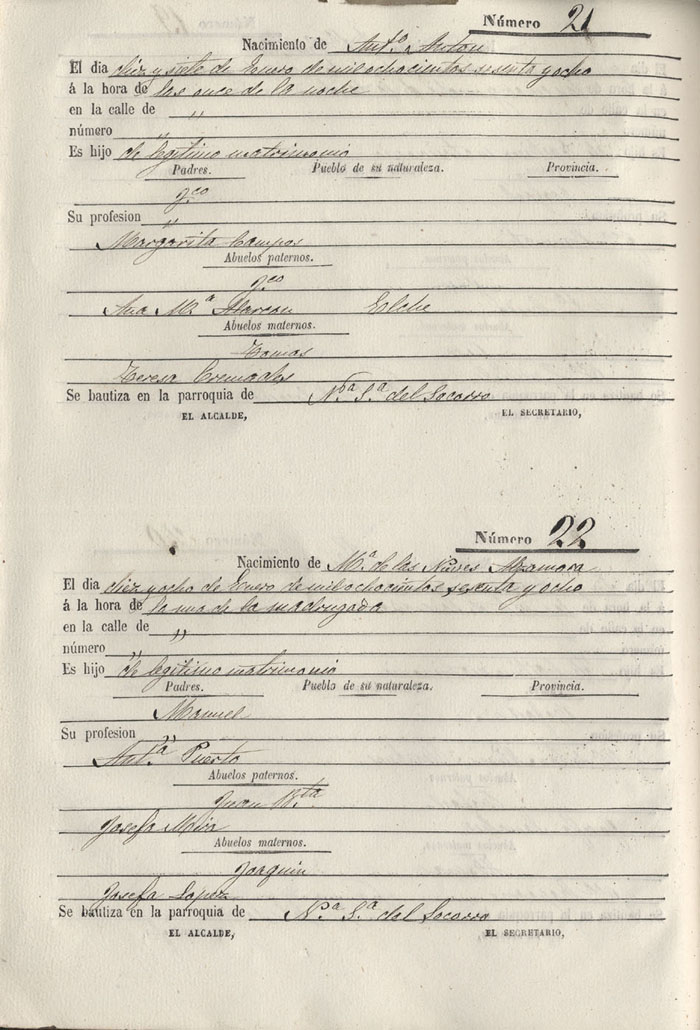 Número 21
Nacimiento de Ant.o Anton
El dia diez y siete de Enero de mil ochocientos sesenta y ocho
á la hora de las once de la noche
en la calle de "
número "
Es hijo de legitimo matrimonio
Padres. Pueblo de su naturaleza. Provincia.
Su profesion "
Margarita Campos
Abuelos paternos.
Ana M.a Alarcon Elche
Abuelos maternos.
Tomas
Teresa Cremades
Se bautiza en la parroquia de N.a S.a del Socorro
EL ALCALDE, EL SECRETARIO,
Número 22
Nacimiento de M.a de las Nieves Alzamora
El dia diez y ocho de Enero de mil ochocientos sesenta y ocho
á la hora de la una de la madrugada
en la calle de "
número "
Es hijo de legitimo matrimonio
Padres. Pueblo de su naturaleza. Provincia.
Manuel
Su profesion "
Ant.a Puerto
Abuelos paternos.
Juan B.ta
Josefa Mira
Abuelos maternos.
Joaquin
Josefa Lopez
Se bautiza en la parroquia de N.a S.a del Socorro
EL ALCALDE, EL SECRETARIO,